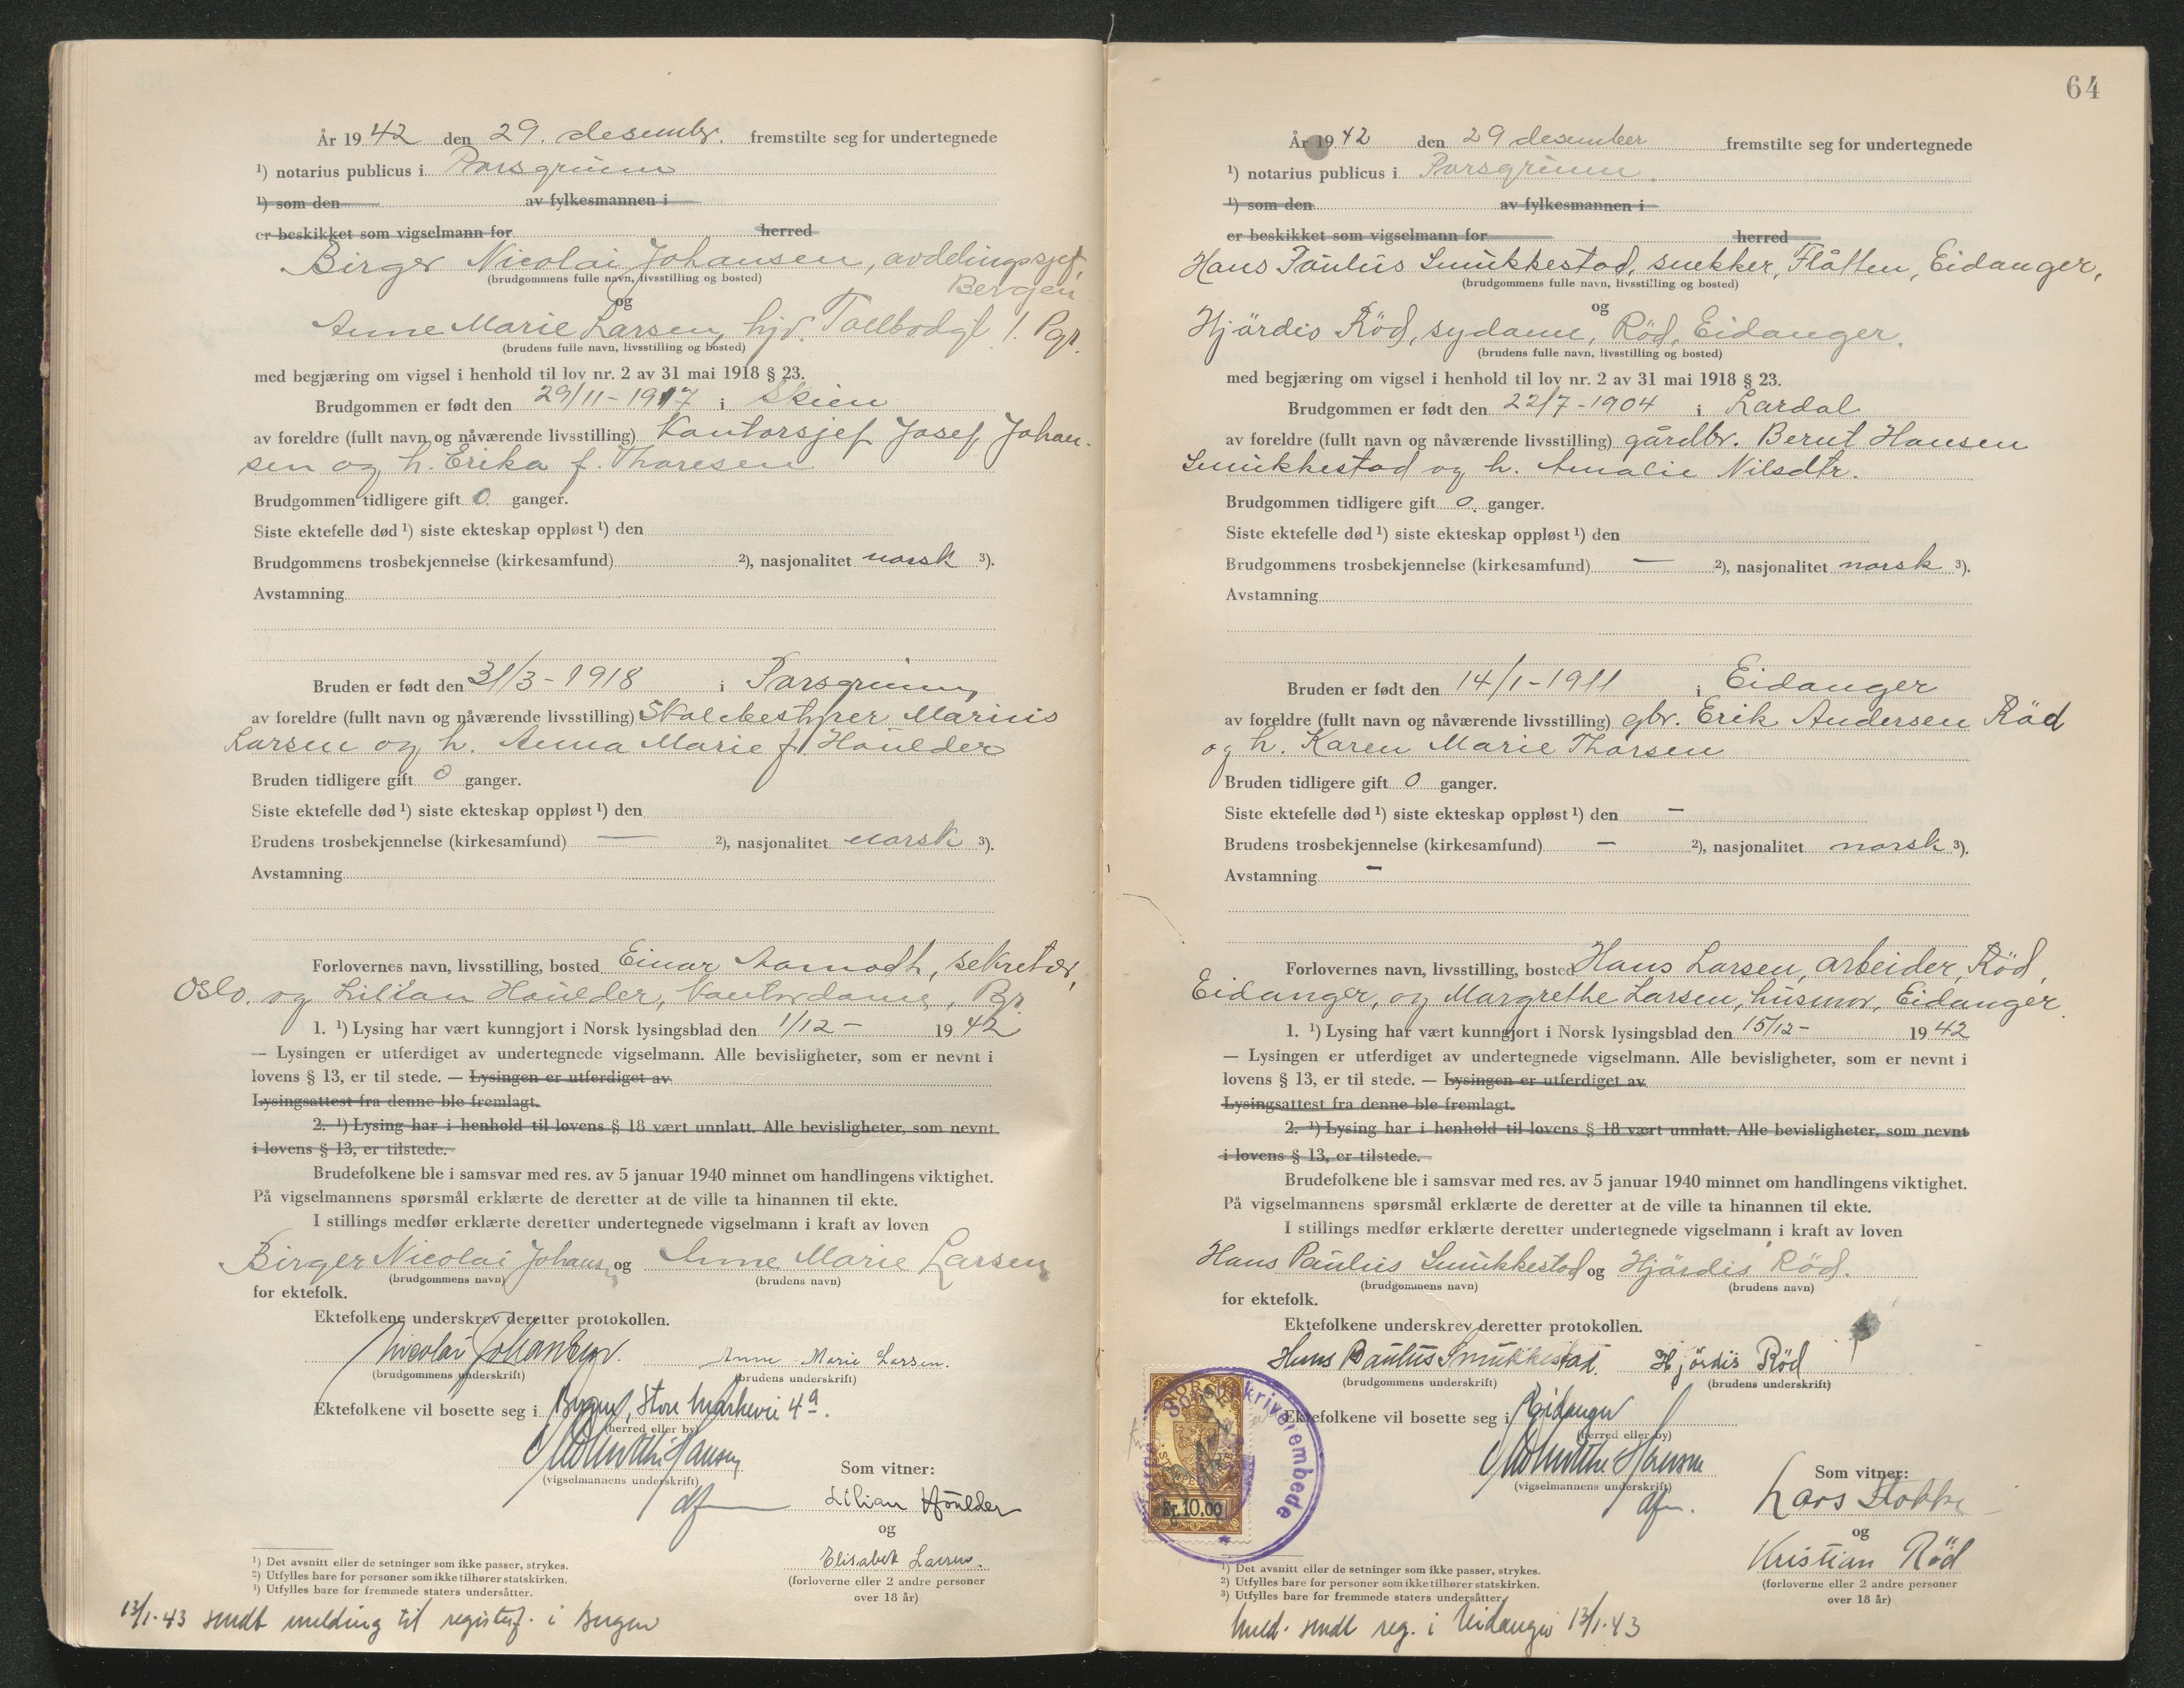 År 1942 den 29. desembr. fremstilte seg for undertegnede
¹) notarius publicus i Porsgrunn
¹) som den av fylkesmannen i
er beskikket som vigselmann for herred
Birger Nicolai Johansen, avdelingssjef,
(brudgommens fulle navn, livsstilling og bosted)
Bergen
og
Anne Marie Larsen, hjv. Tollbodgt 1. Pgr.
(brudens fulle navn, livsstilling og bosted)
med begjæring om vigsel i henhold til lov nr. 2 av 31 mai 1918 § 23.
Brudgommen er født den 29/11-1917 i Skien
av foreldre (fullt navn og nåværende livsstilling) Kontorsjef Josef Johan-
sen og h. Erika f. Thoresen
Brudgommen tidligere gift 0 ganger.
Siste ektefelle død ¹) siste ekteskap oppløst ¹) den
Brudgommens trosbekjennelse (kirkesamfund) ²), nasjonalitet norsk ³).
Avstamning
Bruden er født den 31/3-1918 i Porsgrunn
av foreldre (fullt navn og nåværende livsstilling) Skolebestyrer Marius
Larsen og h. Anna Marie f. Houlder
Bruden tidligere gift 0 ganger.
Siste ektefelle død ¹) siste ekteskap oppløst ¹) den
Brudens trosbekjennelse (kirkesamfund) — ²), nasjonalitet norsk ³).
Avstamning
Forlovernes navn, livsstilling, bosted Einar Aamodt, sekretær,
Oslo. og Lilian Houlder, kontordame, Pgr.
1. ¹) Lysing har vært kunngjort i Norsk lysingsblad den 1/12- 1942
— Lysingen er utferdiget av undertegnede vigselmann. Alle bevisligheter, som er nevnt i
lovens § 13, er til stede. — Lysingen er utferdiget av
Lysingsattest fra denne ble fremlagt.
2. ¹) Lysing har i henhold til lovens § 18 vært unnlatt. Alle bevisligheter, som nevnt
i lovens § 13, er tilstede.
Brudefolkene ble i samsvar med res. av 5 januar 1940 minnet om handlingens viktighet.
På vigselmannens spørsmål erklærte de deretter at de ville ta hinannen til ekte.
I stillings medfør erklærte deretter undertegnede vigselmann i kraft av loven
Birger Nicolai Johansen og Anne Marie Larsen
(brudgommens navn) (brudens navn)
for ektefolk.
Ektefolkene underskrev deretter protokollen.
Nicolai Johansen. Anne-Marie Larsen.
(brudgommens underskrift) (brudens underskrift)
Ektefolkene vil bosette seg i Bergen, Store Markevei 4a.
(herred eller by)
Hansen
(vigselmannens underskrift)
Som vitner:
dfm
Lilian Houlder
og
Elisabet Larsen.
(forloverne eller 2 andre personer
over 18 år)
¹) Det avsnitt eller de setninger som ikke passer, strykes.
²) Utfylles bare for personer som ikke tilhører statskirken.
³) Utfylles bare for fremmede staters undersåtter.
13/1-43 sendt melding til registerf. i Bergen
64
År 1942 den 29 desember fremstilte seg for undertegnede
¹) notarius publicus i Porsgrunn.
¹) som den av fylkesmannen i
er beskikket som vigselmann for herred
Hans Paulus Smukkestad, snekker, Flåtten, Eidanger,
(brudgommens fulle navn, livsstilling og bosted)
og
Hjördis Röd, sydame, Röd, Eidanger.
(brudens fulle navn, livsstilling og bosted)
med begjæring om vigsel i henhold til lov nr. 2 av 31 mai 1918 § 23.
Brudgommen er født den 22/7-1904 i Lardal
av foreldre (fullt navn og nåværende livsstilling) gårdbr. Bernt Hansen
Smukkestad og h. Amalie Nilsdtr.
Brudgommen tidligere gift 0. ganger.
Siste ektefelle død ¹) siste ekteskap oppløst ¹) den
Brudgommens trosbekjennelse (kirkesamfund) — ²), nasjonalitet norsk ³).
Avstamning
Bruden er født den 14/1-1911 i Eidanger
av foreldre (fullt navn og nåværende livsstilling) gbr. Erik Andersen Röd
og h. Karen Marie Thorsen
Bruden tidligere gift 0 ganger.
Siste ektefelle død ¹) siste ekteskap oppløst ¹) den -
Brudens trosbekjennelse (kirkesamfund) - ²), nasjonalitet norsk ³).
Avstamning -
Forlovernes navn, livsstilling, bosted Hans Larsen, arbeider, Röd,
Eidanger, og Margrethe Larsen, husmor, Eidanger.
1. ¹) Lysing har vært kunngjort i Norsk lysingsblad den 15/12- 1942
— Lysingen er utferdiget av undertegnede vigselmann. Alle bevisligheter, som er nevnt i
lovens § 13, er til stede. — Lysingen er utferdiget av
Lysingsattest fra denne ble fremlagt.
2. ¹) Lysing har i henhold til lovens § 18 vært unnlatt. Alle bevisligheter, som nevnt
i lovens § 13, er tilstede.
Brudefolkene ble i samsvar med res. av 5 januar 1940 minnet om handlingens viktighet.
På vigselmannens spørsmål erklærte de deretter at de ville ta hinannen til ekte.
I stillings medfør erklærte deretter undertegnede vigselmann i kraft av loven
Hans Paulus Smukkestad og Hjördis Röd.
(brudgommens navn) (brudens navn)
for ektefolk.
Ektefolkene underskrev deretter protokollen.
Hans Paulus Smukkestad. Hjördis Röd
(brudgommens underskrift) (brudens underskrift)
Ektefolkene vil bosette seg i Eidanger
(herred eller by)
Hansen
(vigselmannens underskrift)
Som vitner:
dfm.
Lars Stokke
og
Kristian Röd
(forloverne eller 2 andre personer
over 18 år)
Kr. 10,00
¹) Det avsnitt eller de setninger som ikke passer, strykes.
²) Utfylles bare for personer som ikke tilhører statskirken.
³) Utfylles bare for fremmede staters undersåtter.
Meld. sendt reg. i Eidanger 13/1-43